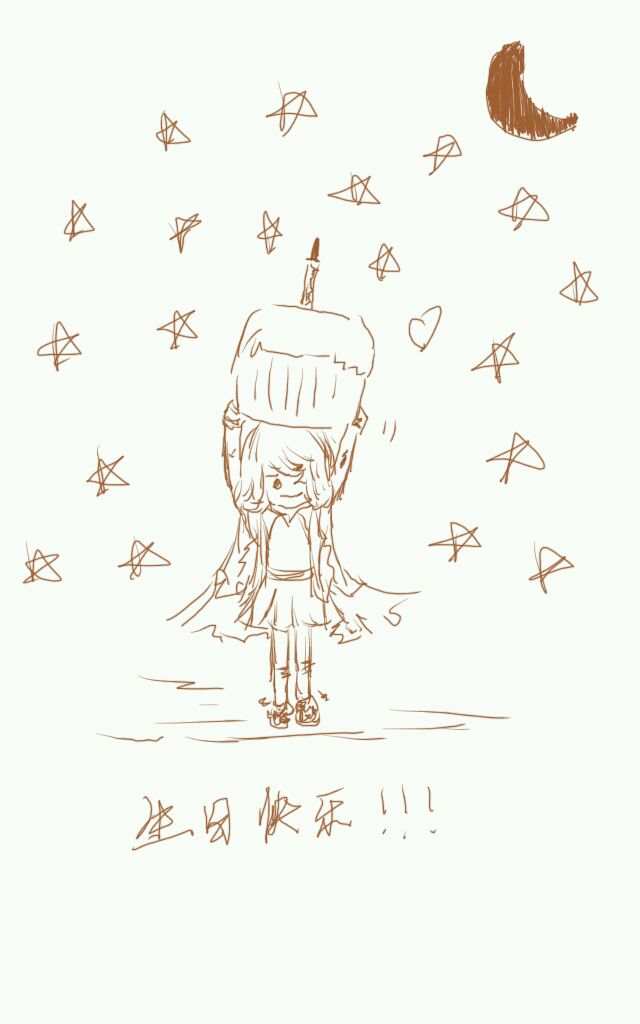 生日快乐!!!